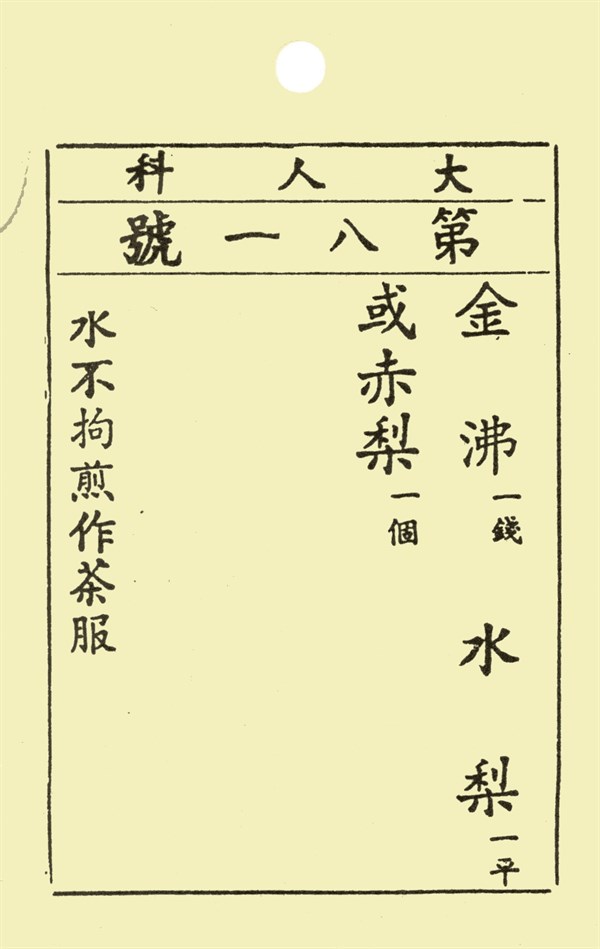 大人科
第八一號
金沸一錢 水梨一平
或赤梨一個
水不拘煎作茶服